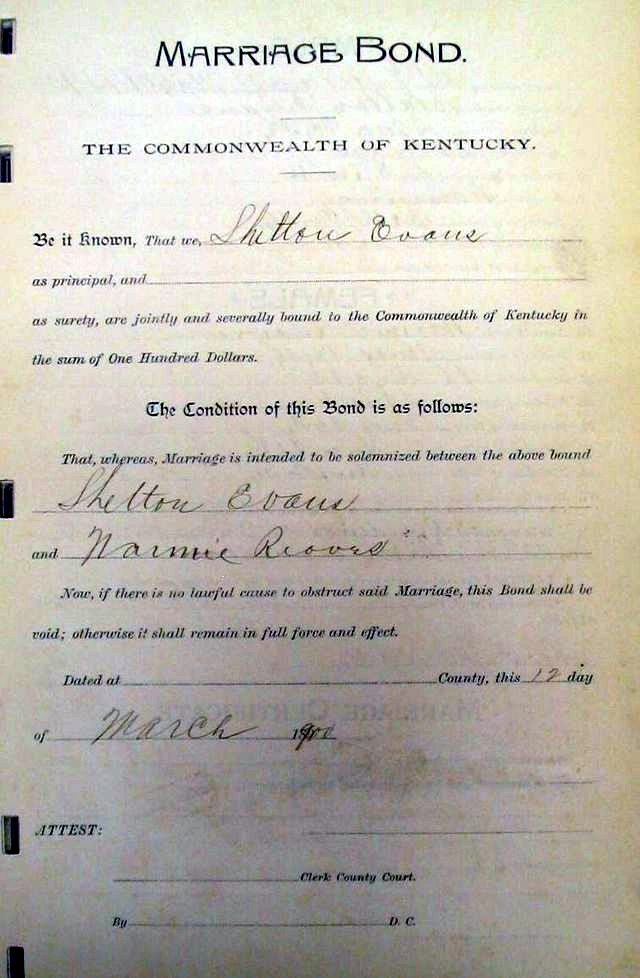 MARRIAGE BOND.
THE COMMONWEALTH OF KENTUCKY.
Be it Known, That we, Shelton Evans
as principal, and
as surety, are jointly and severally bound to the Commonwealth of Kentucky in
the sum of One Hundred Dollars.
The Condition of this Bond is as follows:
That, whereas, Marriage is intended to be solemnized between the above bound
Shelton Evans
and Nannie Reaves
Now, if there is no lawful cause to obstruct said Marriage, this Bond shall be
void; otherwise it shall remain in full force and effect.
Dated at County, this 12 day
of March 1900
ATTEST:
Clerk County Court.
By D. C.